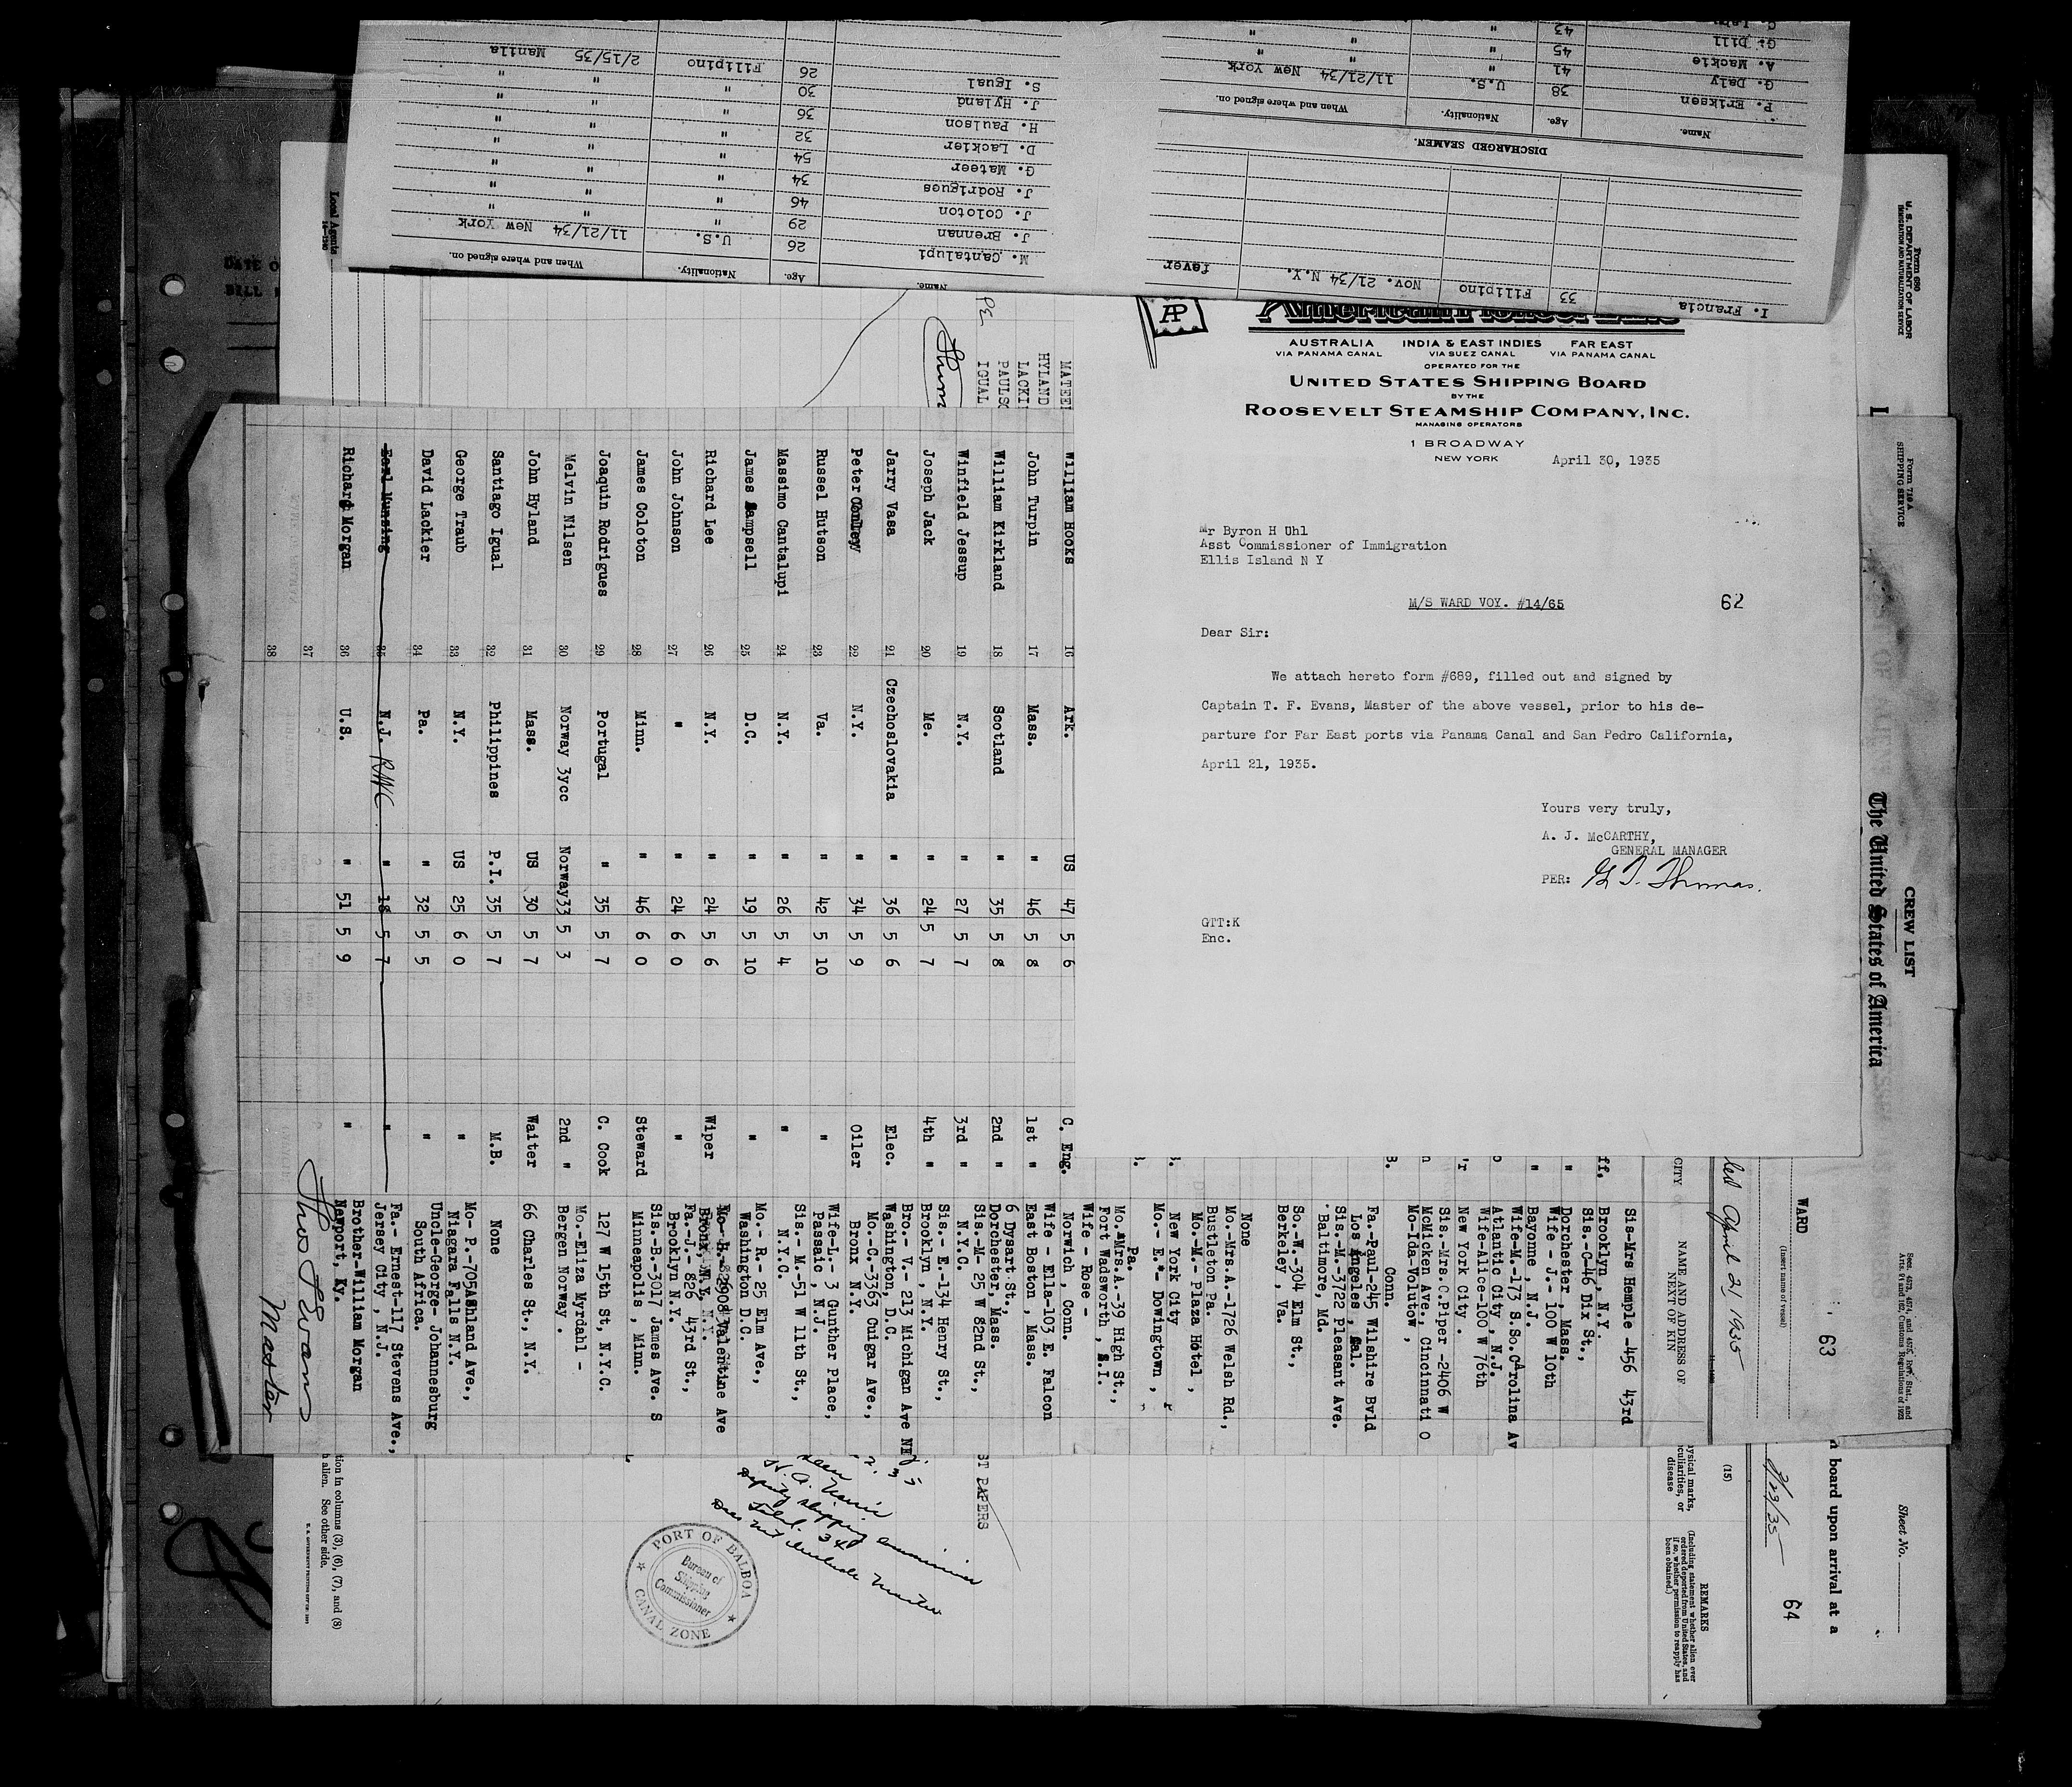 AP
AUSTRALIA INDIA & EAST INDIES FAR EAST
VIA PANAMA CANAL VIA SUEZ CANAL VIA PANAMA CANAL
OPERATED FOR THE
UNITED STATES SHIPPING BOARD
BY THE
ROOSEVELT STEAMSHIP COMPANY, INC.
MANAGING OPERATORS
1 BROADWAY
NEW YORK April 30, 1935
Mr Byron H Uhl
Asst Commissioner of Immigration
Ellis Island N Y
M/S WARD VOY. #14/65 62
Dear Sir:
We attach hereto form #689, filled out and signed by
Captain T. F. Evans, Master of the above vessel, prior to his de-
parture for Far East ports via Panama Canal and San Pedro California,
April 21, 1935.
Yours very truly,
A. J. McCARTHY,
GENERAL MANAGER
PER: G T. Thomas.
GTT:K
Enc.
I. Francia 33 Filipino Nov. 21/34 N.Y. fever
DISCHARGED SEAMEN.
Name. Age. Nationality. When and where signed on.
P. Eriksen 38 U.S. 11/21/34 New York
G. Daly 41 " " "
A. Mackie 45 " " "
G. Dill 43 " "
Name. Age. Nationality. When and where signed on.
M. Cantalupi 26 U.S. 11/21/34 New York
J. Brennan 29 " " "
J. Coloton 46 " " "
J. Rodrigues 34 " " "
G. Mateer 54 " " "
D. Lackier 32 " " "
H. Paulson 36 " " "
J. Hyland 30 " " "
S. Igual 26 Filipino 2/15/35 Manila
Form 680
U. S. DEPARTMENT OF LABOR
IMMIGRATION AND NATURALIZATION SERVICE
Form 710 A
SHIPPING SERVICE
CREW LIST
The United States of America
Sec. 4573, 4574, and 4575, Rev. Stat., and
Arts. 91 and 192, Customs Regulations of 1923
63
WARD
(Insert name of vessel)
led April 21 1935
NAME AND ADDRESS OF
NEXT OF KIN
CITY
Sis-Mrs Hemple -456 43rd
Brooklyn, N.Y.
Sis.-C-46 Dix St.,
Dorchester, Mass.
Wife - J.- 100 W 10th
Bayonne, N.J.
Wife-M.-173 S.So.Carolina Av
Atlantic City, N.J.
Wife-Alice-100 W 76th
New York City.
Sis.-Mrs.C.Piper -2406 W
McMicken Ave., Cincinnati O
Mo-Ida-Volutow,
Conn.
Fa.-Paul-245 Wilshire Bvld
Los Angeles, Cal.
Sis.-M.-3722 Pleasant Ave.
Baltimore, Md.
So.-W.-304 Elm St.,
Berkeley, Va.
None
Mo.-Mrs.A.-1726 Welsh Rd.,
Bustleton Pa.
Mo.-M.- Plaza Hotel,
New York City
Mo.- E.- Dowingtown,
Pa.
Mo.-Mrs.A.-39 High St.,
Fort Wadsworth, S.I.
Wife - Rose -
Norwich, Conn.
William Hooks 16 Ark. US 47 5 6 C. Eng.
John Turpin 17 Mass. " 46 5 8 1st " Wife - Ella-103 E. Falcon
East Boston, Mass.
William Kirkland 18 Scotland " 35 5 8 2nd " 6 Dysart St.,
Dorchester, Mass.
Winfield Jessup 19 N.Y. " 27 5 7 3rd " Sis.-M- 25 W 82nd St.,
N.Y.C.
Joseph Jack 20 Me. " 24 5 7 4th " Sis.- E.-134 Henry St.,
Brooklyn, N.Y.
Jarry Vasa 21 Czechoslovakia " 36 5 6 Elec. Bro.- V.- 213 Michigan Ave NE
Washington, D.C.
Peter Conley 22 N.Y. " 34 5 9 Oiler Mo.-C.-3363 Cuigar Ave.,
Bronx N.Y.
Russel Hutson 23 Va. " 42 5 10 " Wife-L.- 3 Gunther Place,
Passaic, N.J.
Massimo Cantalupi 24 N.Y. " 26 5 4 " Sis.- M.-51 W 11th St.,
N.Y.C.
James Sampsell 25 D.C. " 19 5 10 " Mo.- R.- 25 Elm Ave.,
Washington D.C.
Richard Lee 26 N.Y. " 24 5 6 Wiper Valentine Ave
Bronx, N.Y.
John Johnson 27 " " 24 6 0 " Fa.-J.- 826 43rd St.,
Brooklyn N.Y.
James Coloton 28 Minn. " 46 6 0 Steward Sis.-B.-3017 James Ave. S
Minneapolis, Minn.
Joaquin Rodrigues 29 Portugal " 35 5 7 C. Cook 127 W 15th St, N.Y.C.
Melvin Nilsen 30 Norway 3ycc Norway 33 5 3 2nd " Mo.-Eliza Myrdahl -
Bergen Norway.
John Hyland 31 Mass. US 30 5 7 Waiter 66 Charles St., N.Y.
Santiago Igual 32 Philippines P.I. 35 5 7 M.B. None
George Traub 33 N.Y. US 25 6 0 " Mo- P.-705Ashland Ave.,
Niagara Falls N.Y.
David Lackier 34 Pa. " 32 5 5 " Uncle-George- Johannesburg
South Africa.
Earl Munsing 35 N.J. " 18 5 7 " Fa.- Ernest-117 Stevens Ave.,
Jersey City, N.J.
Richard Morgan 36 U.S. " 51 5 9 " Brother-William Morgan
Newport, Ky.
37
38
Thos F Evans
Master
MATEER
HYLAND
LACKI
PAULSO
IGUAL
Local Agents
Sheet No.
board upon arrival at a
3/23/35
64
(15)
REMARKS
(Including statement whether alien ever
ordered deported from United States, and
if so, whether permission to reapply has
been obtained.)
ysical marks,
culiarities, or
disease
ST PAPERS
Seen
Deputy Shipping Commissioner
does not include Master
PORT OF BALBOA
Bureau of
Shipping
Commissioner
CANAL ZONE
tion in columns (3), (6), (7), and (8)
h alien. See other side.